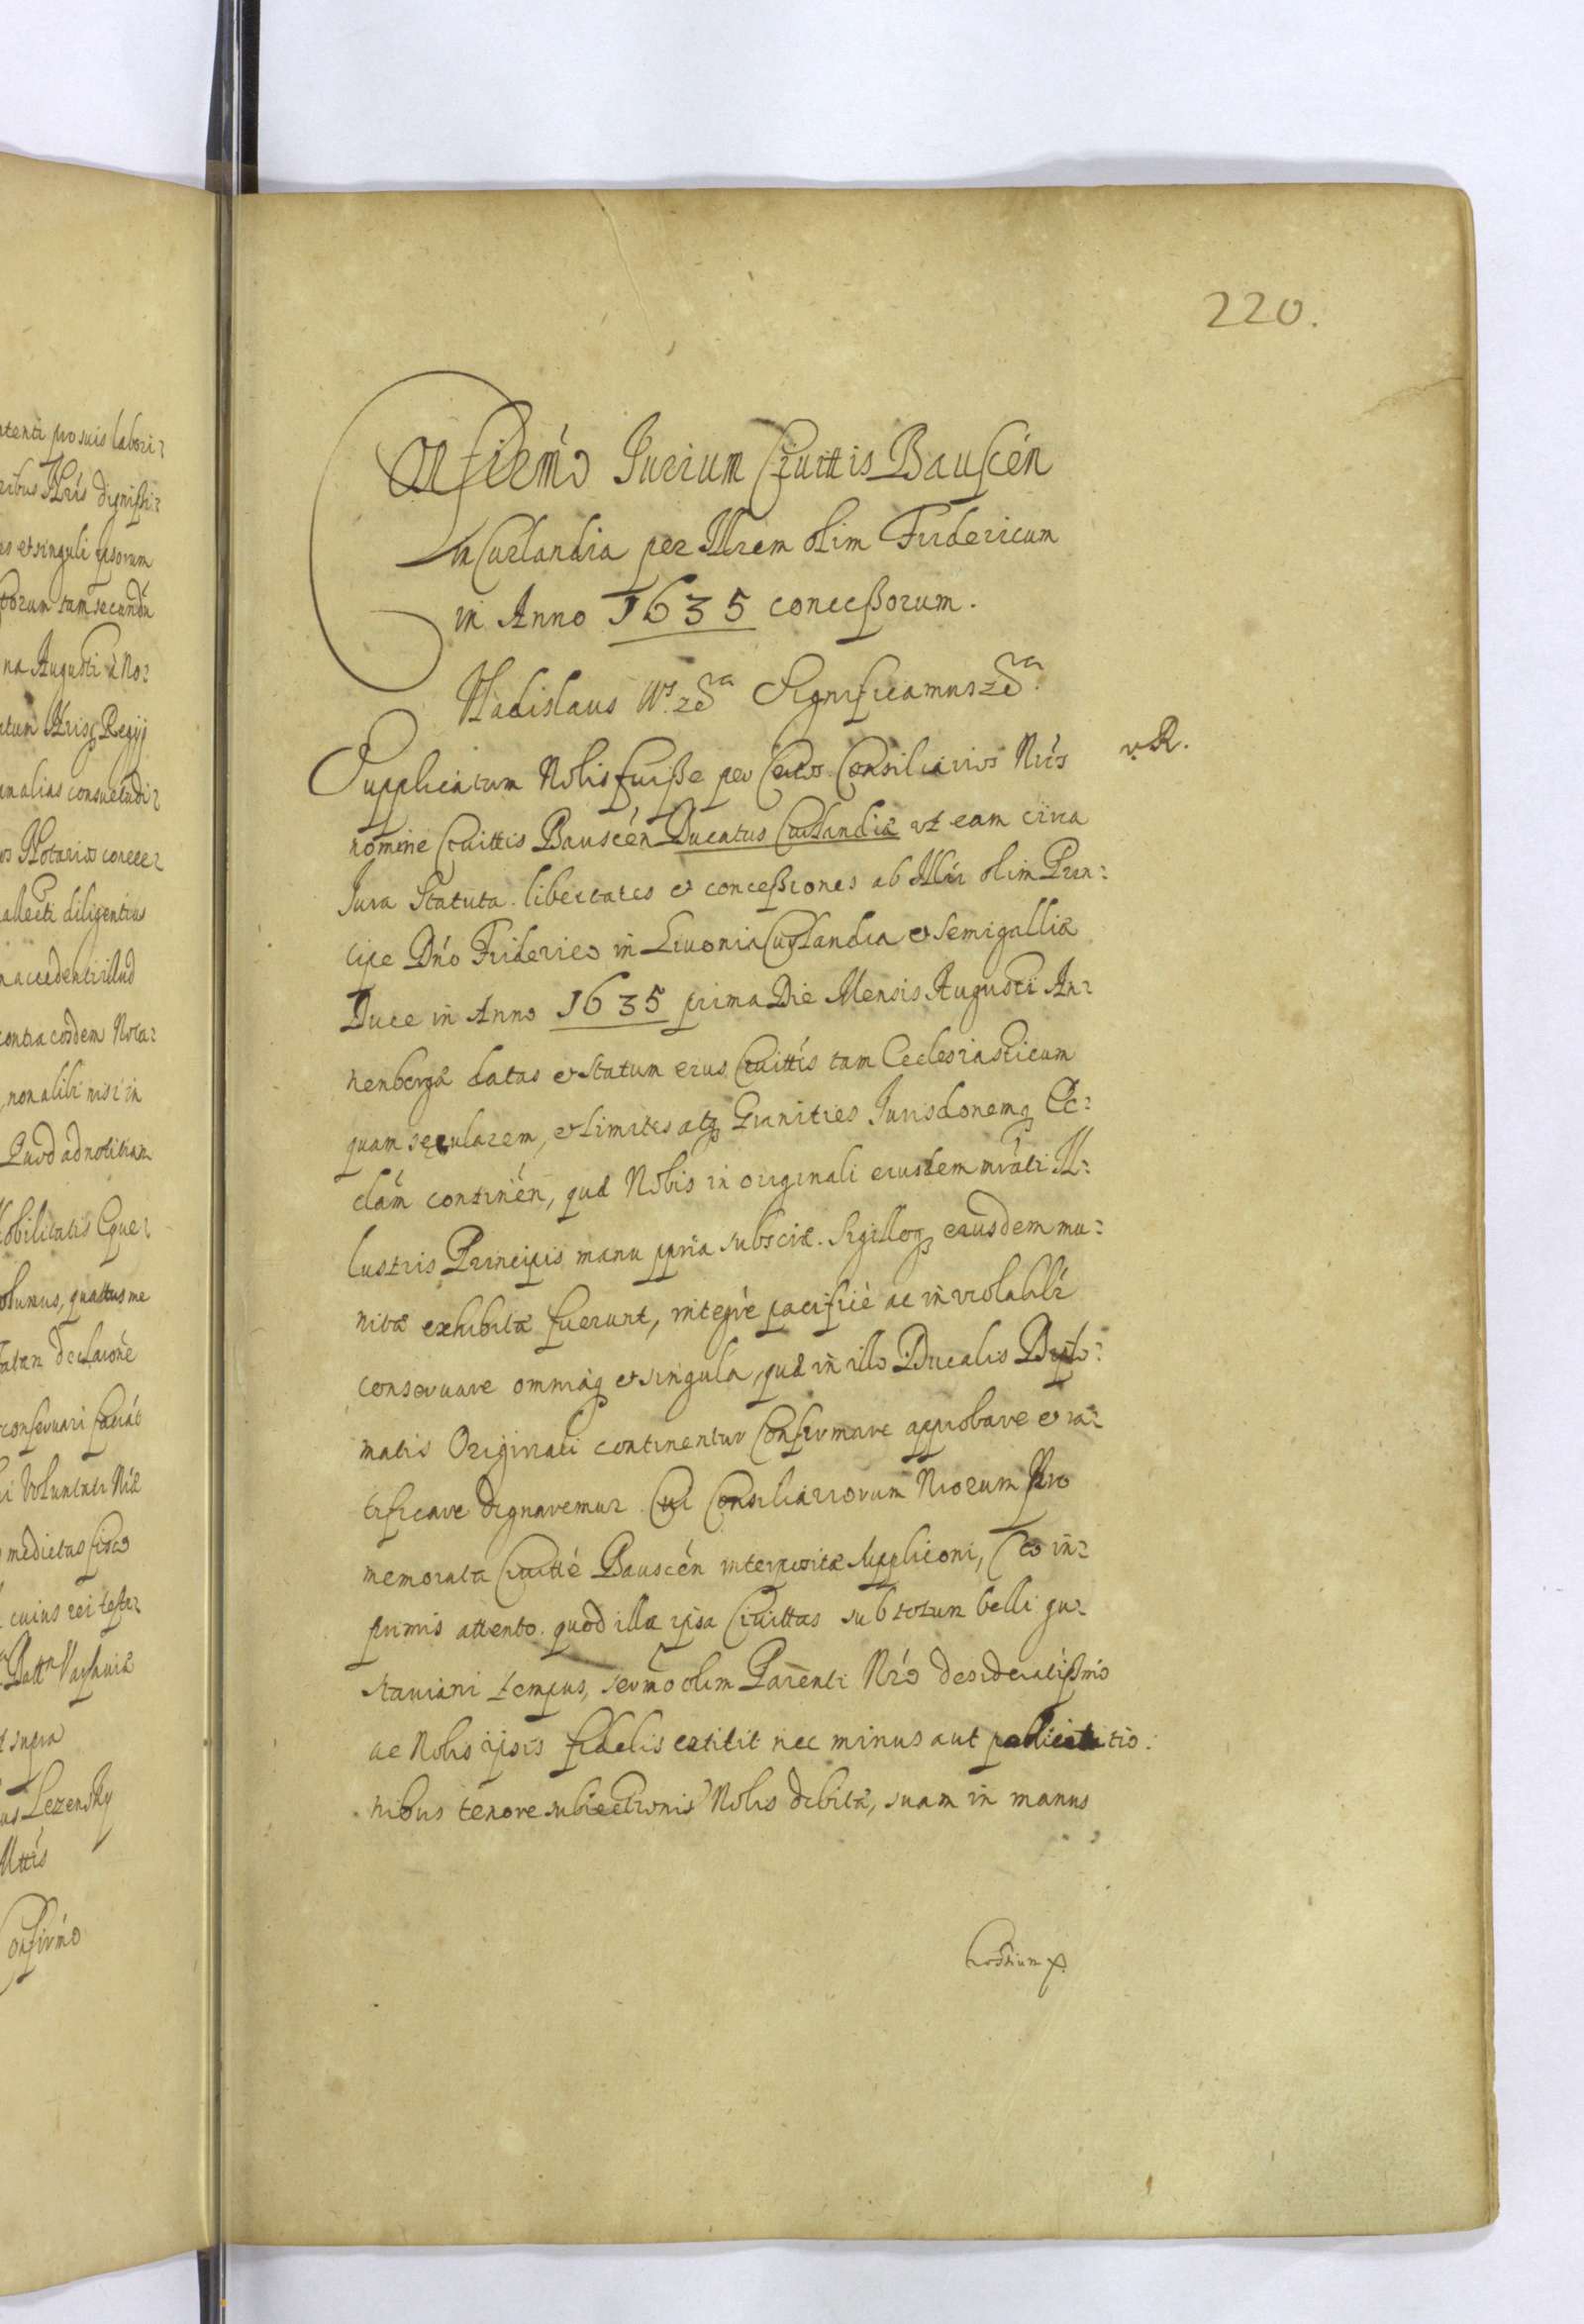 220.
Confirmo Jurium Ciuittis Bauscén
in Curlandia per Illrem olim Fridericum
in Anno 1635 concessorum.
Vladislaus IVs. etca Significamus etca.
Supplicatum Nobis fuisse per certos Consiliarios Nros
v. R.
nomine Ciuittis Bauscén Ducatus Curlandiæ vt eam circa
Jura Statuta libertates et concessiones ab Illri olim Prin:
cipe Dno Friderico in Liuonia Curlandia et Semigallia
Duce in Anno 1635 prima Die Mensis Augusti An:
nenbergæ datas et statum eius Ciuittis tam Ecclesiasticum
quam secularem, et limites atq Granities Jurisdonemq Ec:
clam continén, quæ Nobis in originali eiusdem mrati Il:
lustris Principis manu ppria subscræ. Sigilloq eiusdem mu:
nitæ exhibitæ fuerunt, integre pacifice ac inviolablr
conseruare omniaq et singula, quæ in illo Ducalis Diplo:
matis Originali continentur Confirmare approbare et ra:
tificare dignaremur. Cui Consiliariorum Nrorum pro
memorata Ciuitte Bauscén interpositæ supplicōni, eo in:
primis attento quod illa ipsa Ciuittas sub totum belli gu:
stauiani tempus, sermo olim Parenti Nro desideratissimo
ac Nobis ipsis fidelis extitit nec minus aut tio:
nibus tenore subiectionis Nobis debitæ, suam in manus
hostium
atenti pro suis labori:
ribus Nris dignissi:
es et singuli ipsorum
torum tam secundu
na Augusti à No:
atum Nrisq Regij
in alias consuetudi:
os Notarios concee:
allecti diligentius
n accedenti illud
contra eosdem Nota:
, non alibi nisi in
Quod ad notitiam
Nobilitatis Eque:
olumus, quattus me
declaione
conseruari faciát
i Voluntati Nræ
medietas fisco
cuius rei testi:
Datt Varsauiæ
t supra
us Lezensky
Mttis
Confirmo